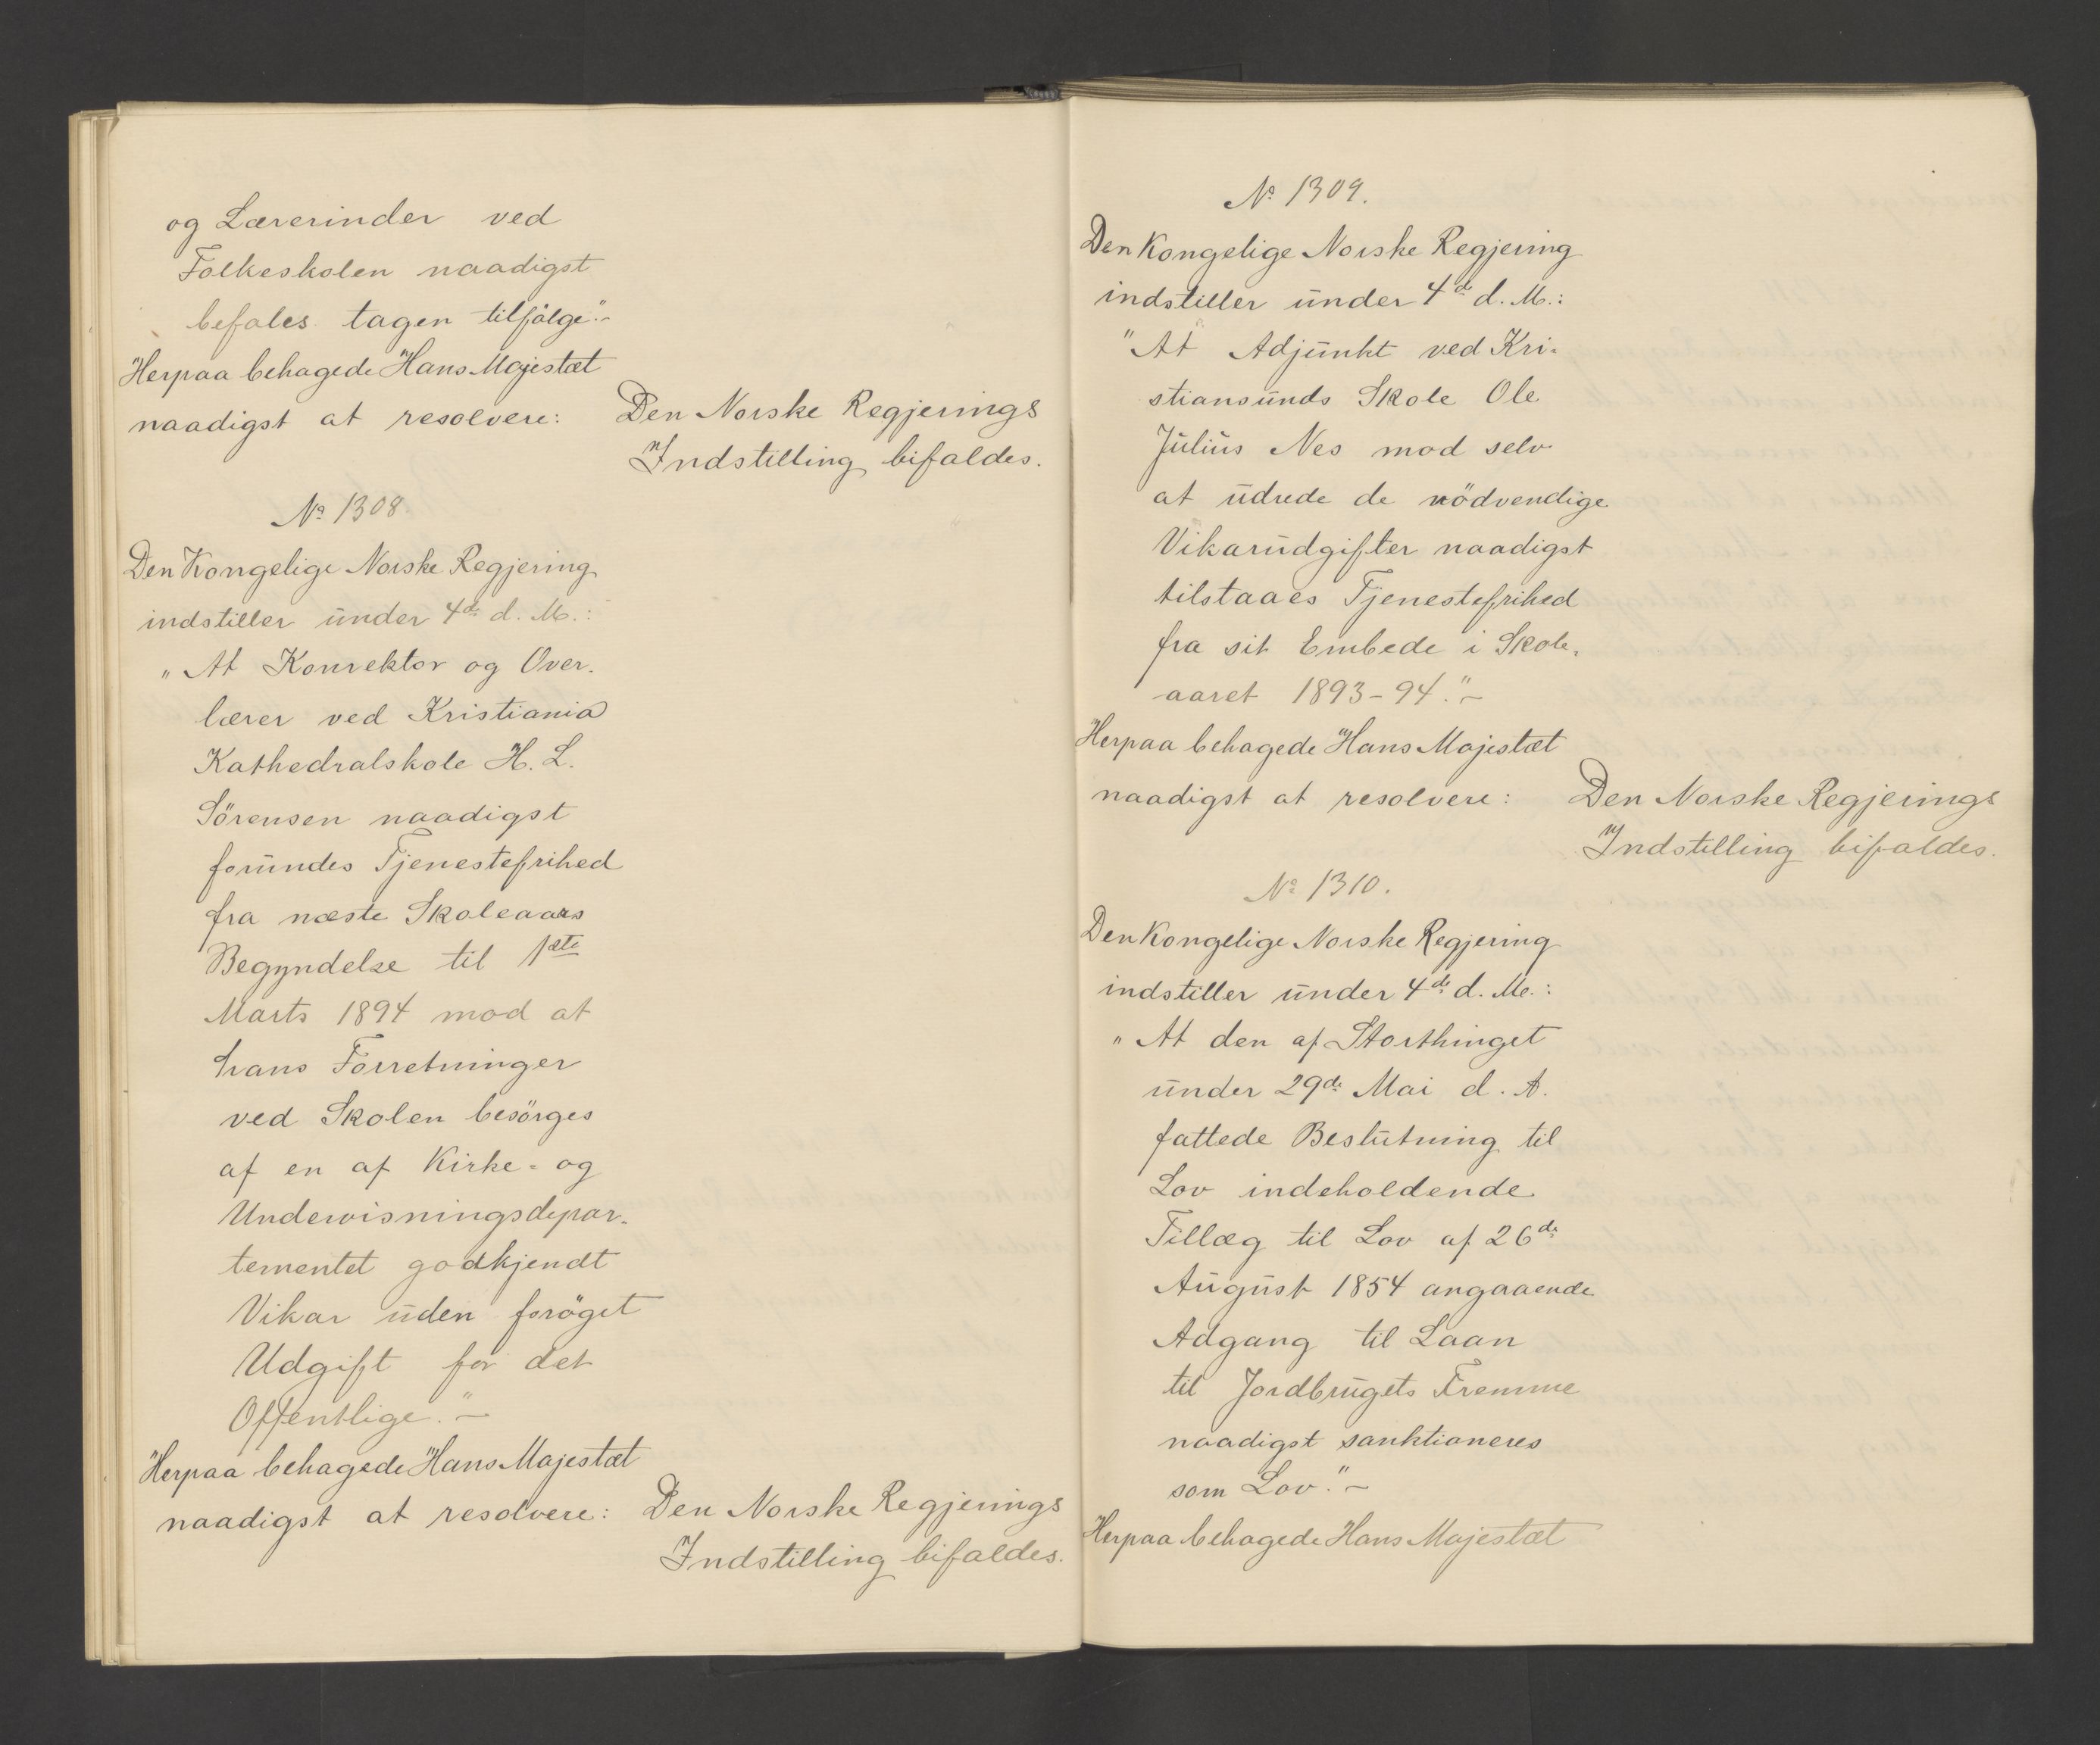 og Lærerinder ved
Folkeskolen naadigst
befales tagen tilfölge."-
Herpaa behagede Hans Majestæt
naadigst at resolvere: Den Norske Regjerings
Indstilling bifaldes.
No 1308
Den Kongelige Norske Regjering
indstiller under 4de d. M.:
„At Konrektor og Over-
lærer ved Kristiania
Kathedralskole H. L.
Sörensen naadigst
forundes Tjenestefrihed
fra næste Skoleaars
Begyndelse til 1ste
Marts 1894 mod at
hans Forretninger
ved Skolen besörges
af en af Kirke- og
Undervisningsdepar-
tementet godkjendt
Vikar uden foröget
Udgift for det
Offentlige."-
Herpaa behagede Hans Majestæt
naadigst at resolvere: Den Norske Regjerings
Indstilling bifaldes.
No 1309.
Den Kongelige Norske Regjering
indstiller under 4de d. M.:
"At Adjunkt ved Kri-
stiansunds Skole Ole
Julius Nes mod selv
at udrede de nödvendige
Vikarudgifter naadigst
tilstaaes Tjenestefrihed
fra sit Embede i Skole-
aaret 1893-94."-
Herpaa behagede Hans Majestæt
naadigst at resolvere: Den Norske Regjerings
Indstilling bifaldes.
No 1310.
Den Kongelige Norske Regjering
indstiller under 4de d. M.:
"At den af Storthinget
under 29de Mai d. A.
fattede Beslutning til
Lov indeholdende
Tillæg til Lov af 26de
August 1854 angaaende
Adgang til Laan
til Jordbrugets Fremme
naadigst sanktioneres
som Lov."-
Herpaa behagede Hans Majestæt